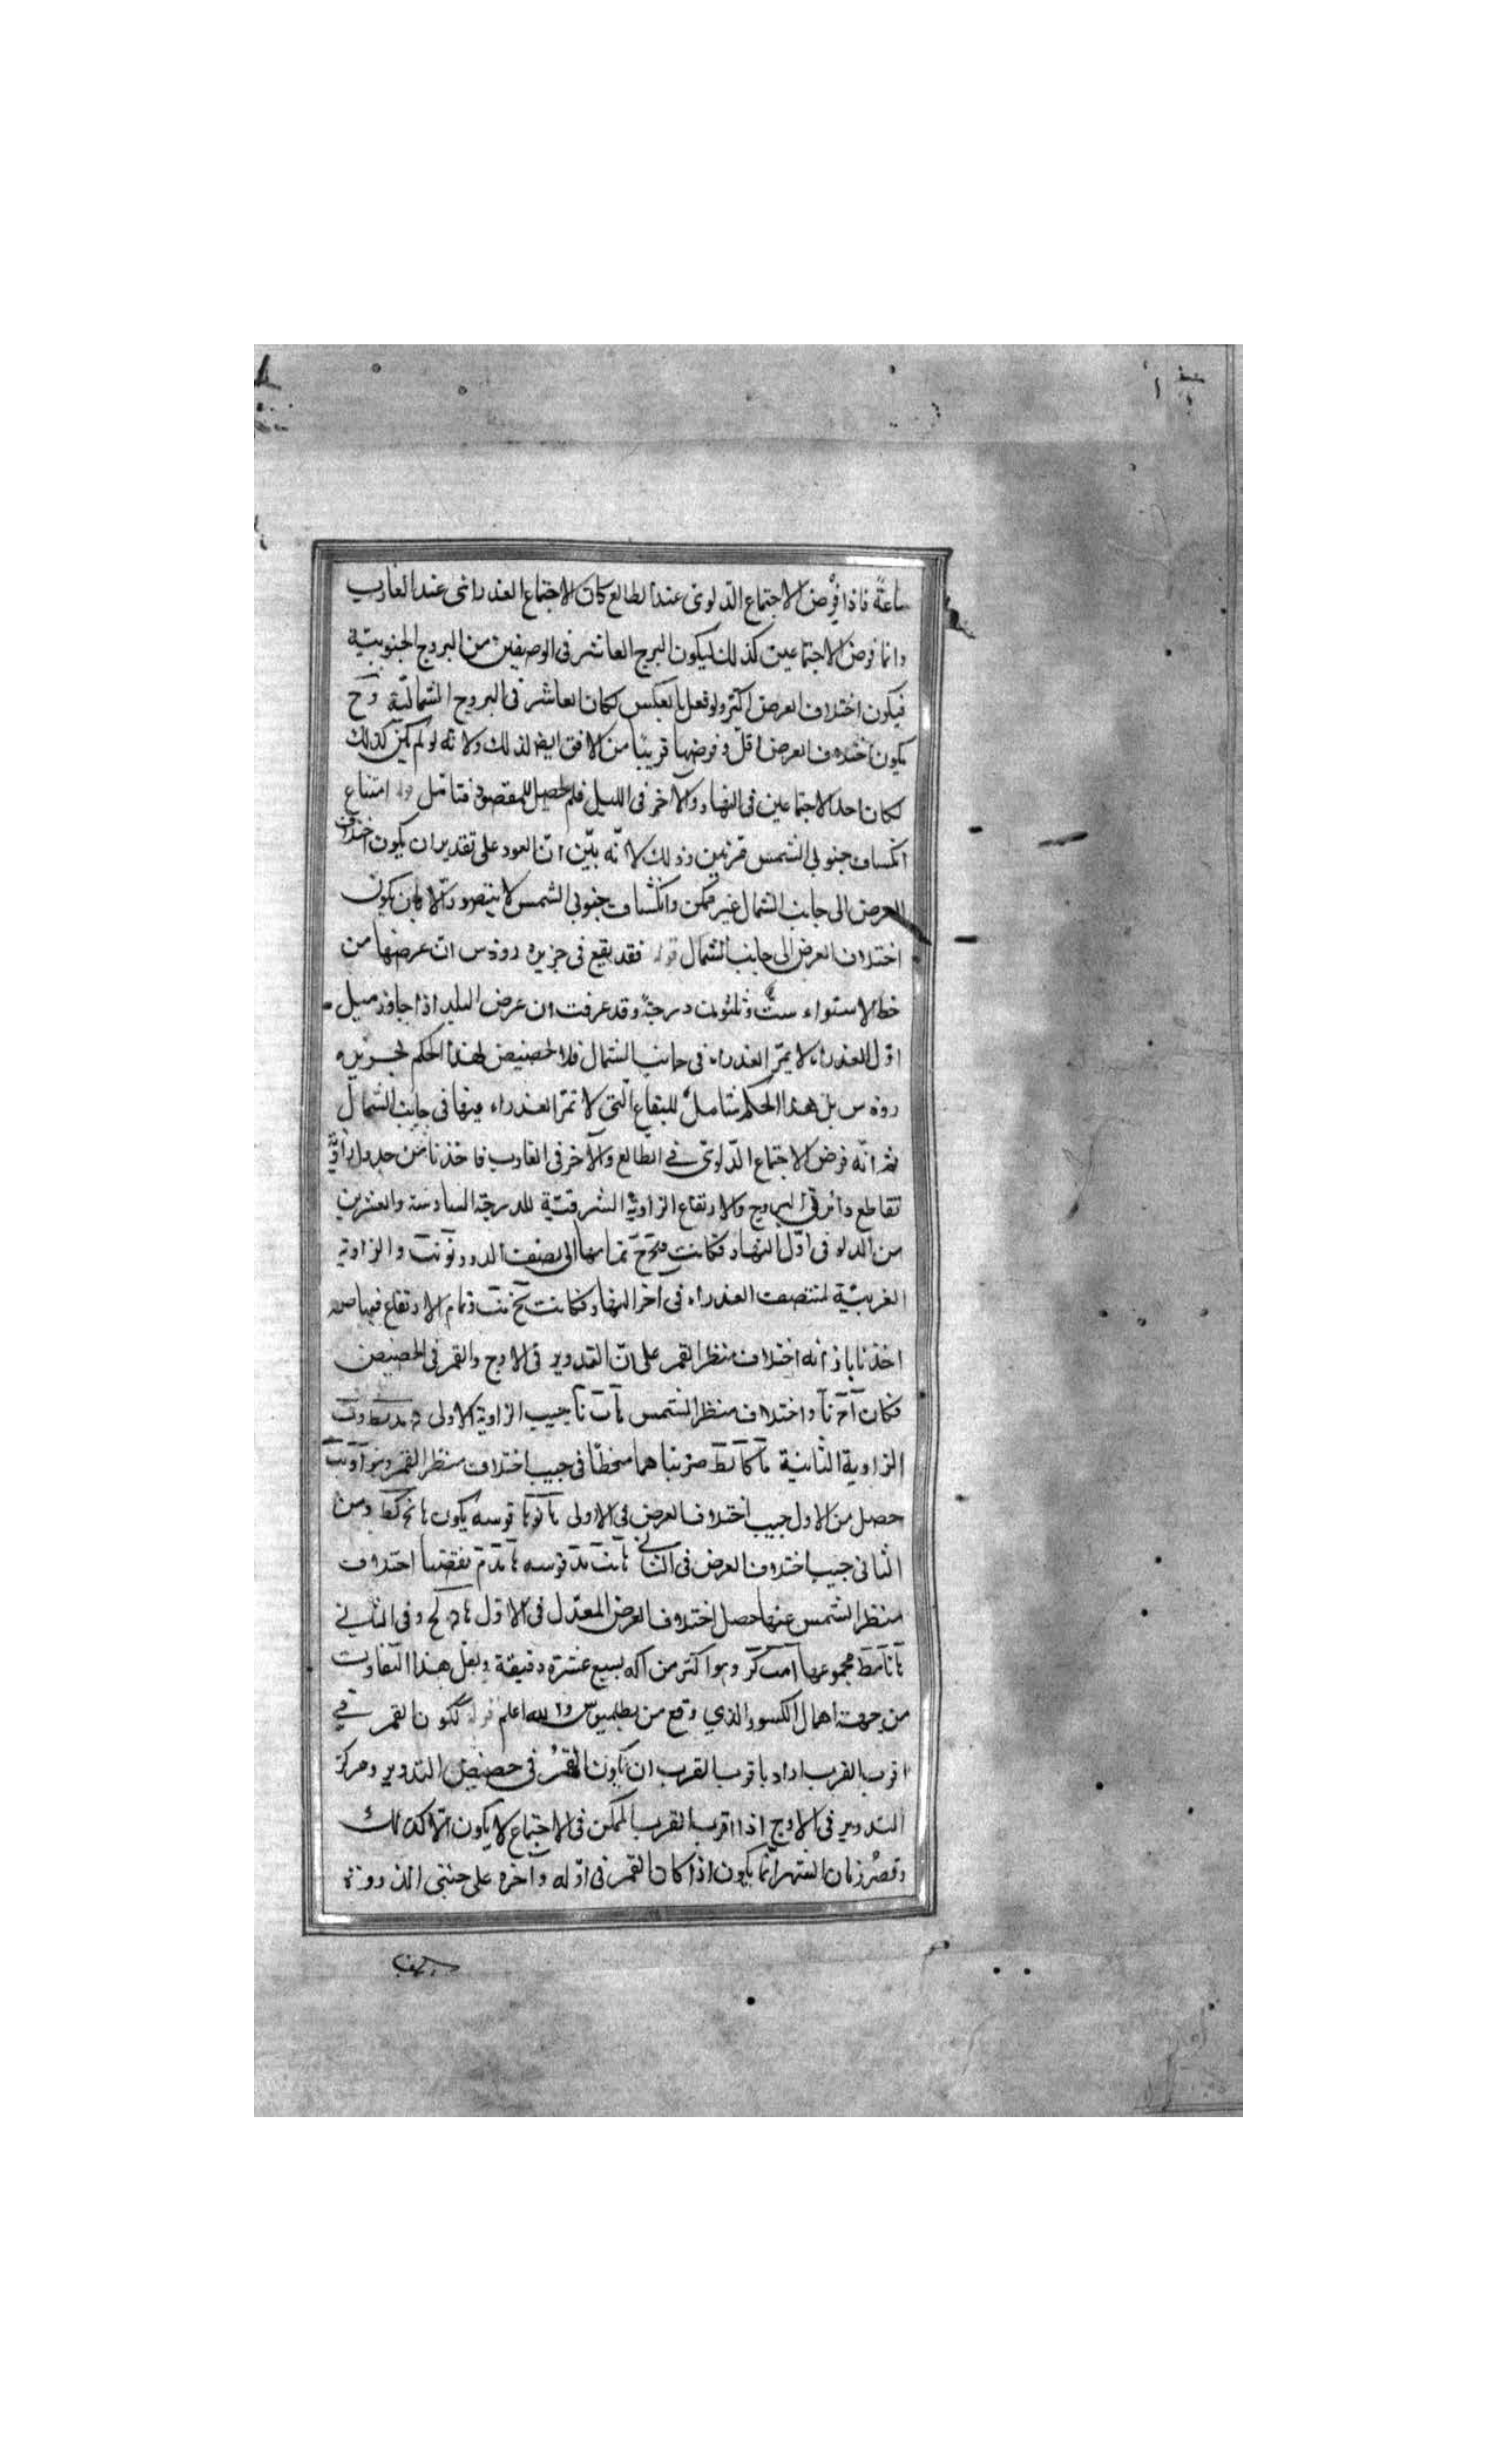 ساعة فاذا فرض الاجتماع الدلوى عند الطالع كان الاجتماع العذرائى عند الغارب
وانما فرض الاجتماعين كذلك ليكون البرج العاشر فى الوصفين من البروج الجنوبيّة
فيكون اختلاف العرض اكثر ولو فعل بالعكس لكان العاشر فى البروج الشماليّة وح
يكون اختلاف العرض اقلّ وفرضها قريبًا من الافق ايضا لذلك ولانّه لو لم يكن كذلك
لكان احد الاجتماعين فى النهار والآخر فى الليل فلم يحصل المقصود فتامّل قوله امتناع
انكساف جنوبى الشمس مرتين وذلك لانّه بيّن انّ العود على تقدير ان يكون اختلاف
العرض الى جانب الشمال غير ممكن وانكساف جنوبى الشمس لا يتصور الّا بان يكون
اختلاف العرض الى جانب الشمال قوله فقد يقع فى جزيره رودس انّ عرضها من
خط الاستواء ستّ وثلثون درجة وقد عرفت ان عرض البلد اذا جاوز ميل
اوّل العذراء لا يمرّ العذراء فى جانب الشمال فلا تخصيص لهذا الحكم بجزيره
رودس بل هذا الحكم شاملٌ للبقاع التى لا تمرّ العذراء فيها فى جانب الشمال
ثم انّه فرض الاجتماع الدّلوى فى الطالع والآخر فى الغارب فاخذنا من جدول زاويتى
تقاطع دائرتى البروج والارتفاع الزاوية الشرقيّة للدرجة السادسة والعشرين
من الدلو فى اوّل النهار فكانت تمامها الى نصف الدور والزاوية
الغربيّة لمنتصف العذراء فى آخر النهار فكانت وتمام الارتفاع فيهما صه
اخذنا بازائه اختلاف منظر القمر على انّ التدوير فى الاوج والقمر فى الحضيض
فكان واختلاف منظر الشمس جيب الزاوية الاولى
الزاوية الثانية ضربناهما منحطّا فى جيب اختلاف منظر القمر وهو
حصل من الاول جيب اختلاف العرض فى الاولى قوسه يكون ومن
الثانى جيب اختلاف العرض فى الثانى قوسه نقصنا اختلاف
منظر الشمس عنها حصل اختلاف العرض المعدّل فى الاوّل وفى الثانى
مجموعهما وهو اكثر من بسبع عشرة دقيقة ولعل هذا التفاوت
من جهة اهمال الكسور الذي وقع من بطلميوس والله اعلم قوله لكون القمر في
اقرب القرب اراد باقرب القرب ان يكون القمر فى حضيض التدوير ومركز
التدوير فى الاوج اذ اقرب القرب الممكن فى الاجتماع لا يكون الّا كذلك
وقصر زمان الشهر انّما يكون اذا كان القمر فى اوّله وآخره على جنبتى الذروة